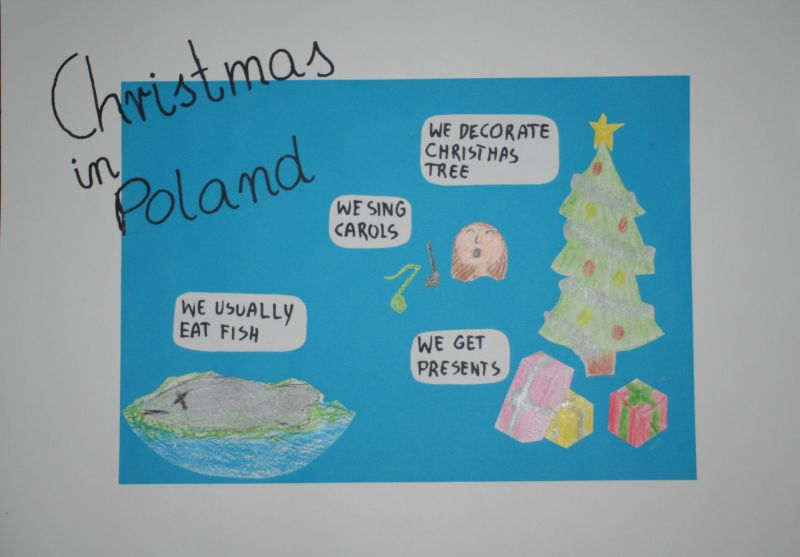 Christmas
in
Poland
WE DECORATE
CHRISTMAS
TREE
WE SING
CAROLS
WE USUALLY
EAT FISH
WE GET
PRESENTS